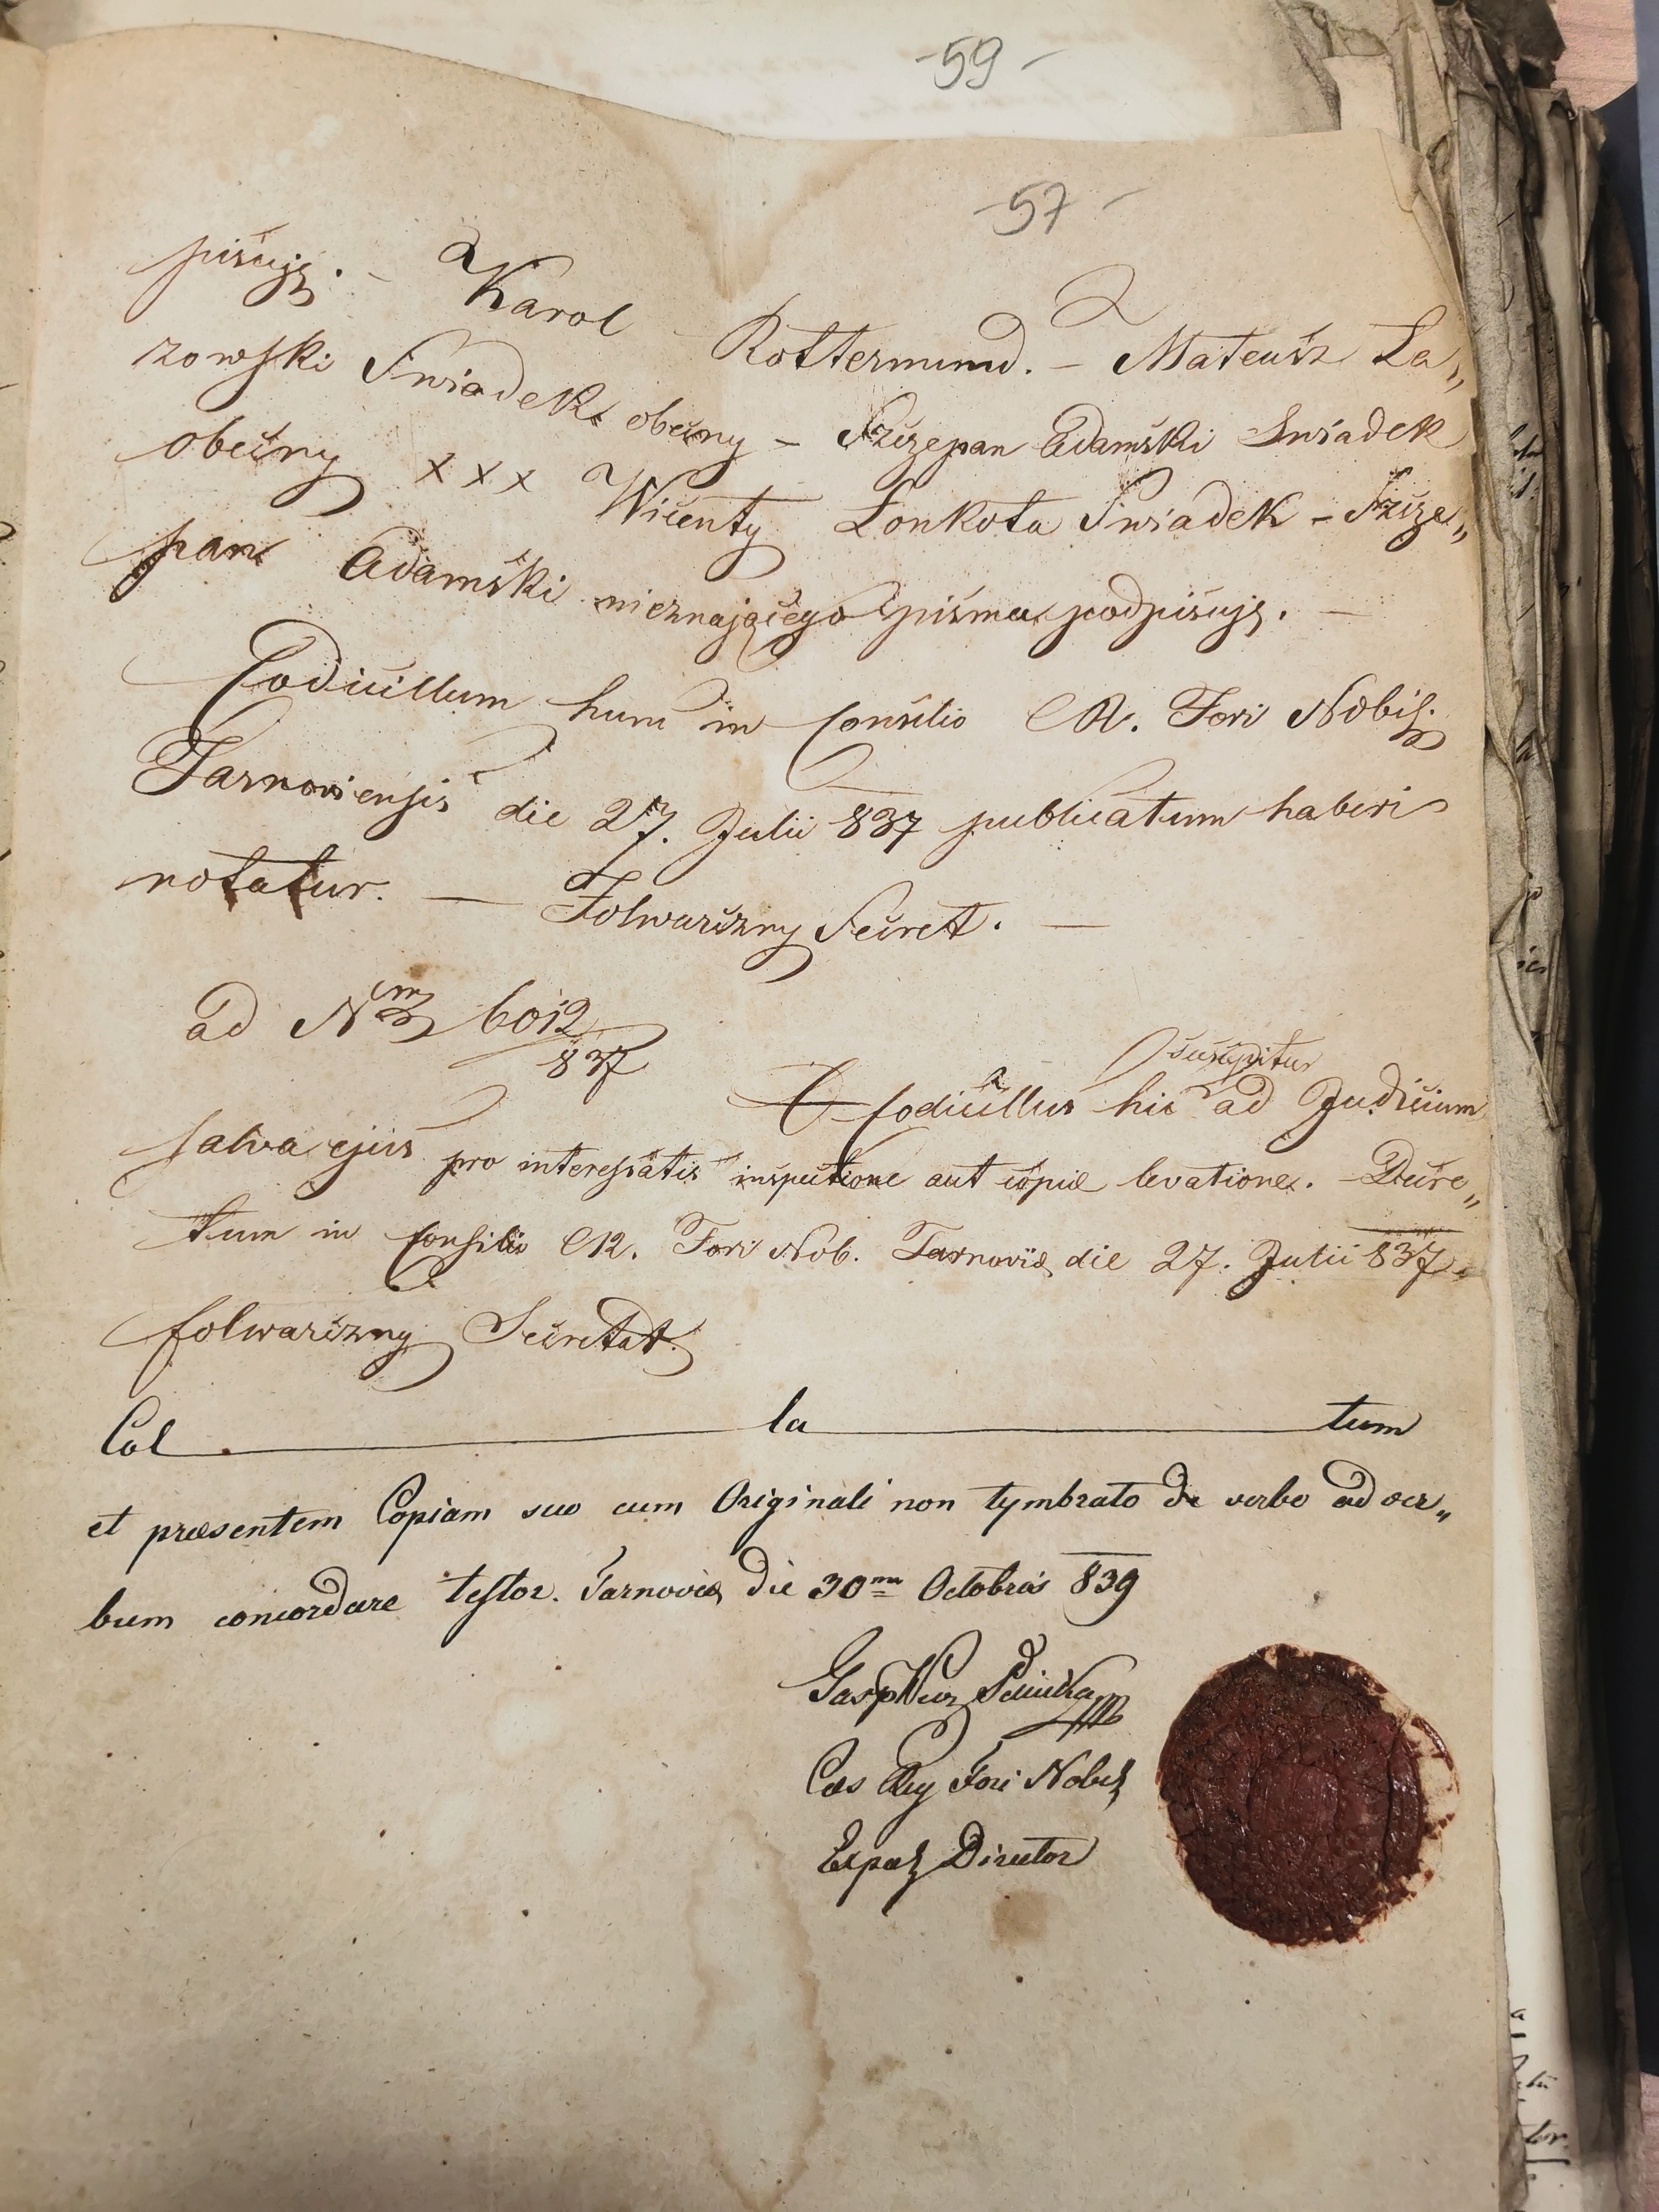 -59-
-57-
pisuję. – Karol Rottermund. – Mateusz La„
zowski Swiadek obecny – Szczepan Adamski Swiadek
obecny x x x Wicenty Lonkota Swiadek – Szcze„
pana Adamski nieznającego pisma podpisuję. –
Codicillum hunc in Consilio C. R. Fori Nobil.
Tarnoviensis die 27. Julii 837 publicatum haberi
notatur. — Folwarczny Secret. —
ad Nrm 6012
837
suscipitur
Codicillus hic ad Judicium
salva ejus pro interessatis inspectione aut copiæ levatione. – Decre„
tum in Consilio C R. Fori Nob. Tarnoviæ die 27. Julii 837.
Folwarczny Secretar.
Col la tum
et præsentem Copiam suo cum Originali non tymbrato de verbo ad ver„
bum concordare testor. Tarnoviæ die 30ma Octobris 839
Cæs Reg Fori Nobil
Expad Director